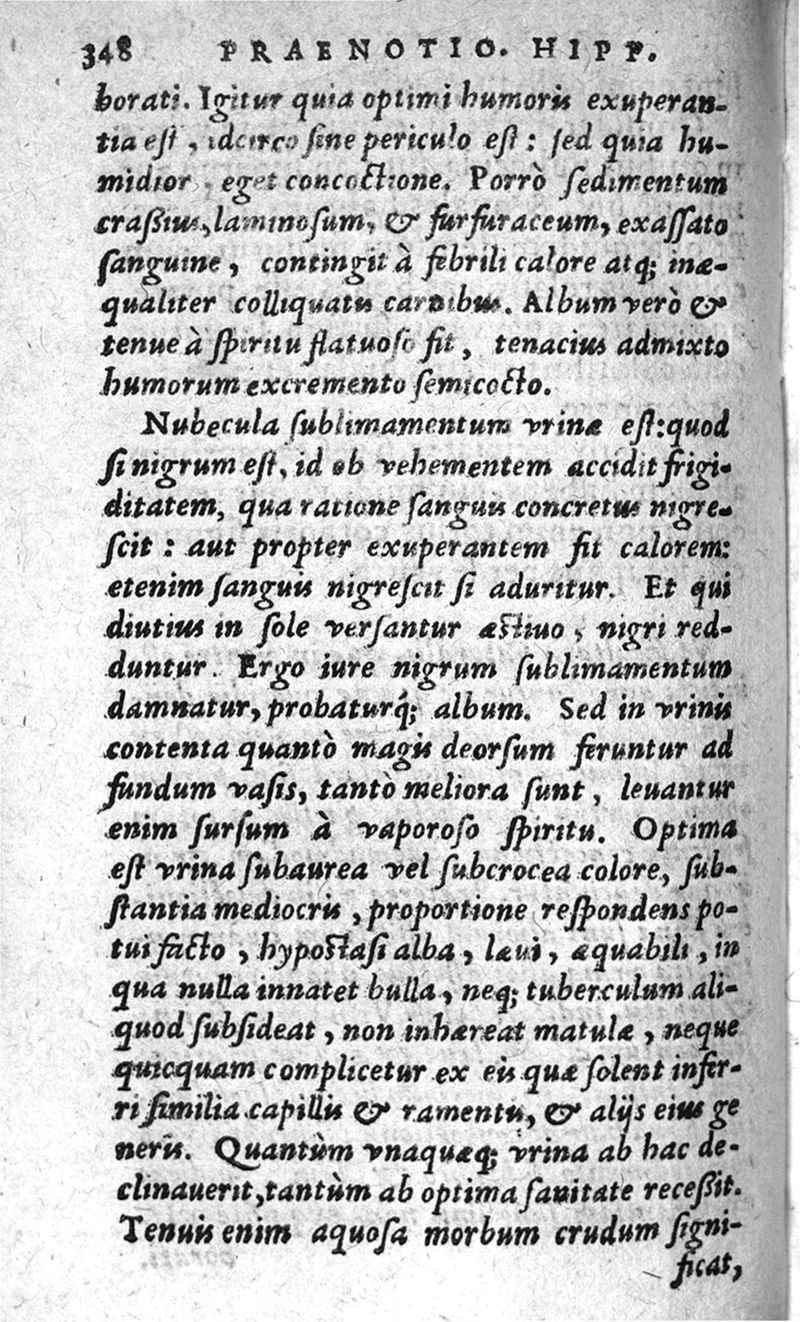 348 PRAENOTIO. HIPP.
borati. Igitur quia optimi humoris exuperan-
tia est, idcirco sine periculo est: sed quia hu-
midior, eget concoctione. Porrò sedimentum
craßius, laminosum, & furfuraceum, exassato
sanguine, contingit à febrili calore atq; inæ-
qualiter colliquatis carnibus. Album verò &
tenue à spiritu flatuoso fit, tenacius admixto
humorum excremento semicocto.
Nubecula sublimamentum vrinæ est: quod
si nigrum est, id ob vehementem accidit frigi-
ditatem, qua ratione sanguis concretus nigre-
scit: aut propter exuperantem fit calorem:
etenim sanguis nigrescit si aduritur. Et qui
diutius in sole versantur æstiuo, nigri red-
duntur. Ergo iure nigrum sublimamentum
damnatur, probaturq́; album. Sed in vrinis
contenta quantò magis deorsum feruntur ad
fundum vasis, tantò meliora sunt, leuantur
enim sursum à vaporoso spiritu. Optima
est vrina subaurea vel subcrocea colore, sub-
stantia mediocris, proportione respondens po-
tui facto, hypostasi alba, læui, æquabili, in
qua nulla innatet bulla, neq; tuberculum ali-
quod subsideat, non inhæreat matulæ, neque
quicquam complicetur ex eis quæ solent infer-
ri similia capillis & ramentis, & alijs eius ge
neris. Quantùm vnaquæq; vrina ab hac de-
clinauerit, tantùm ab optima sanitate receßit.
Tenuis enim aquosa morbum crudum signi-
ficat,